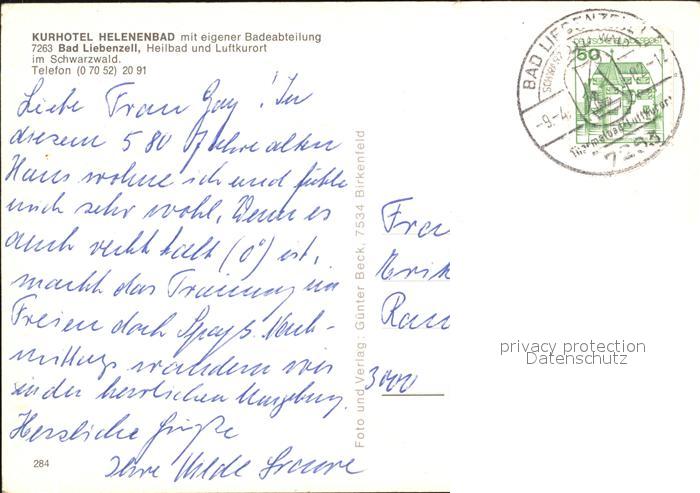 KURHOTEL HELENENBAD mit eigener Badeabteilung
7263 Bad Liebenzell, Heilbad und Luftkurort
im Schwarzwald.
Telefon (0 70 52) 20 91
Liebe Frau Gay! In
diesem 580 Jahre alten
Haus wohne ich und fühle
mich sehr wohl. Wenn es
auch recht kalt (0°) ist,
macht das Training im
Freien doch Spaß. Nach-
mittags wandern wir
in der herrlichen Umgebung.
Herzliche Grüße
Ihre Hilde
284
Foto und Verlag: Günter Beck, 7534 Birkenfeld
BAD LIEBENZELL 1
-9.-4.
Thermalbad+Luftkurort
7263
60
Frau
Erik
3000
privacy protection
Datenschutz